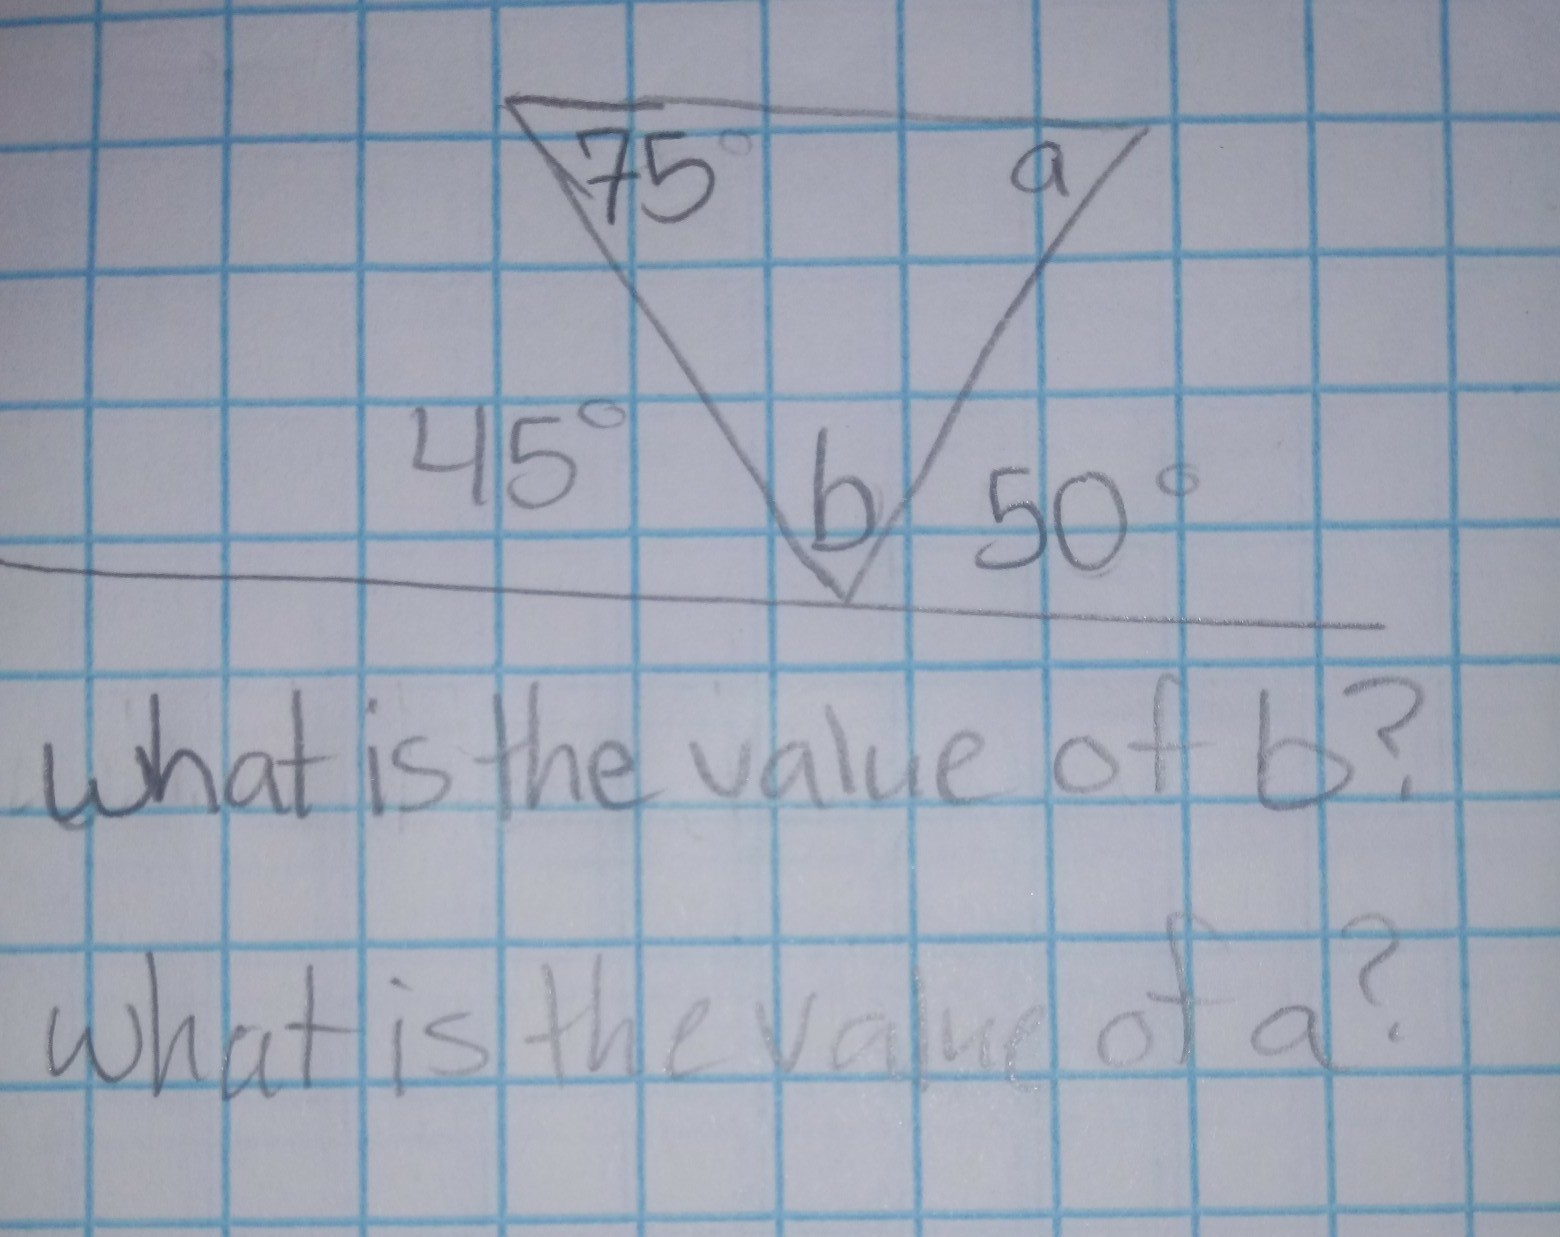 75° a
45° b 50°
what is the value of b?
what is the value of a?